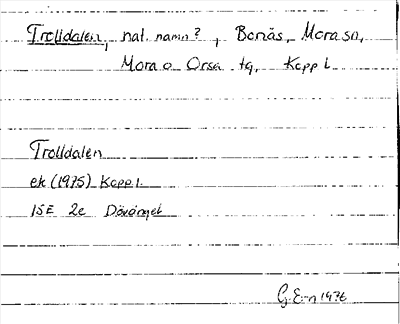 Trolldalen, nat. namn?, Bonäs, Mora sn,
Mora o Orsa tg, Kopp l.
Trolldalen
ek (1975) Kopp l.
15E 2c
G.E-n 1976